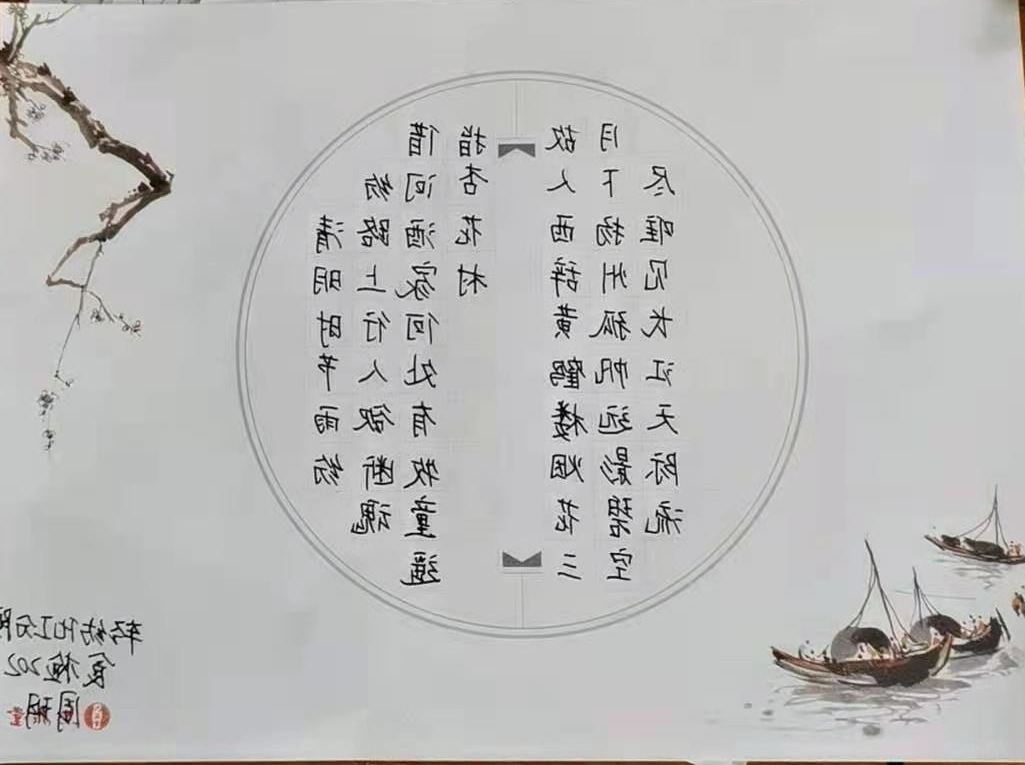 清明时节雨纷
纷路上行人欲断魂
借问酒家何处有牧童遥
指杏花村
故人西辞黄鹤楼烟花三
月下扬州孤帆远影碧空
尽唯见长江天际流
轻纺化工分
食检202
周